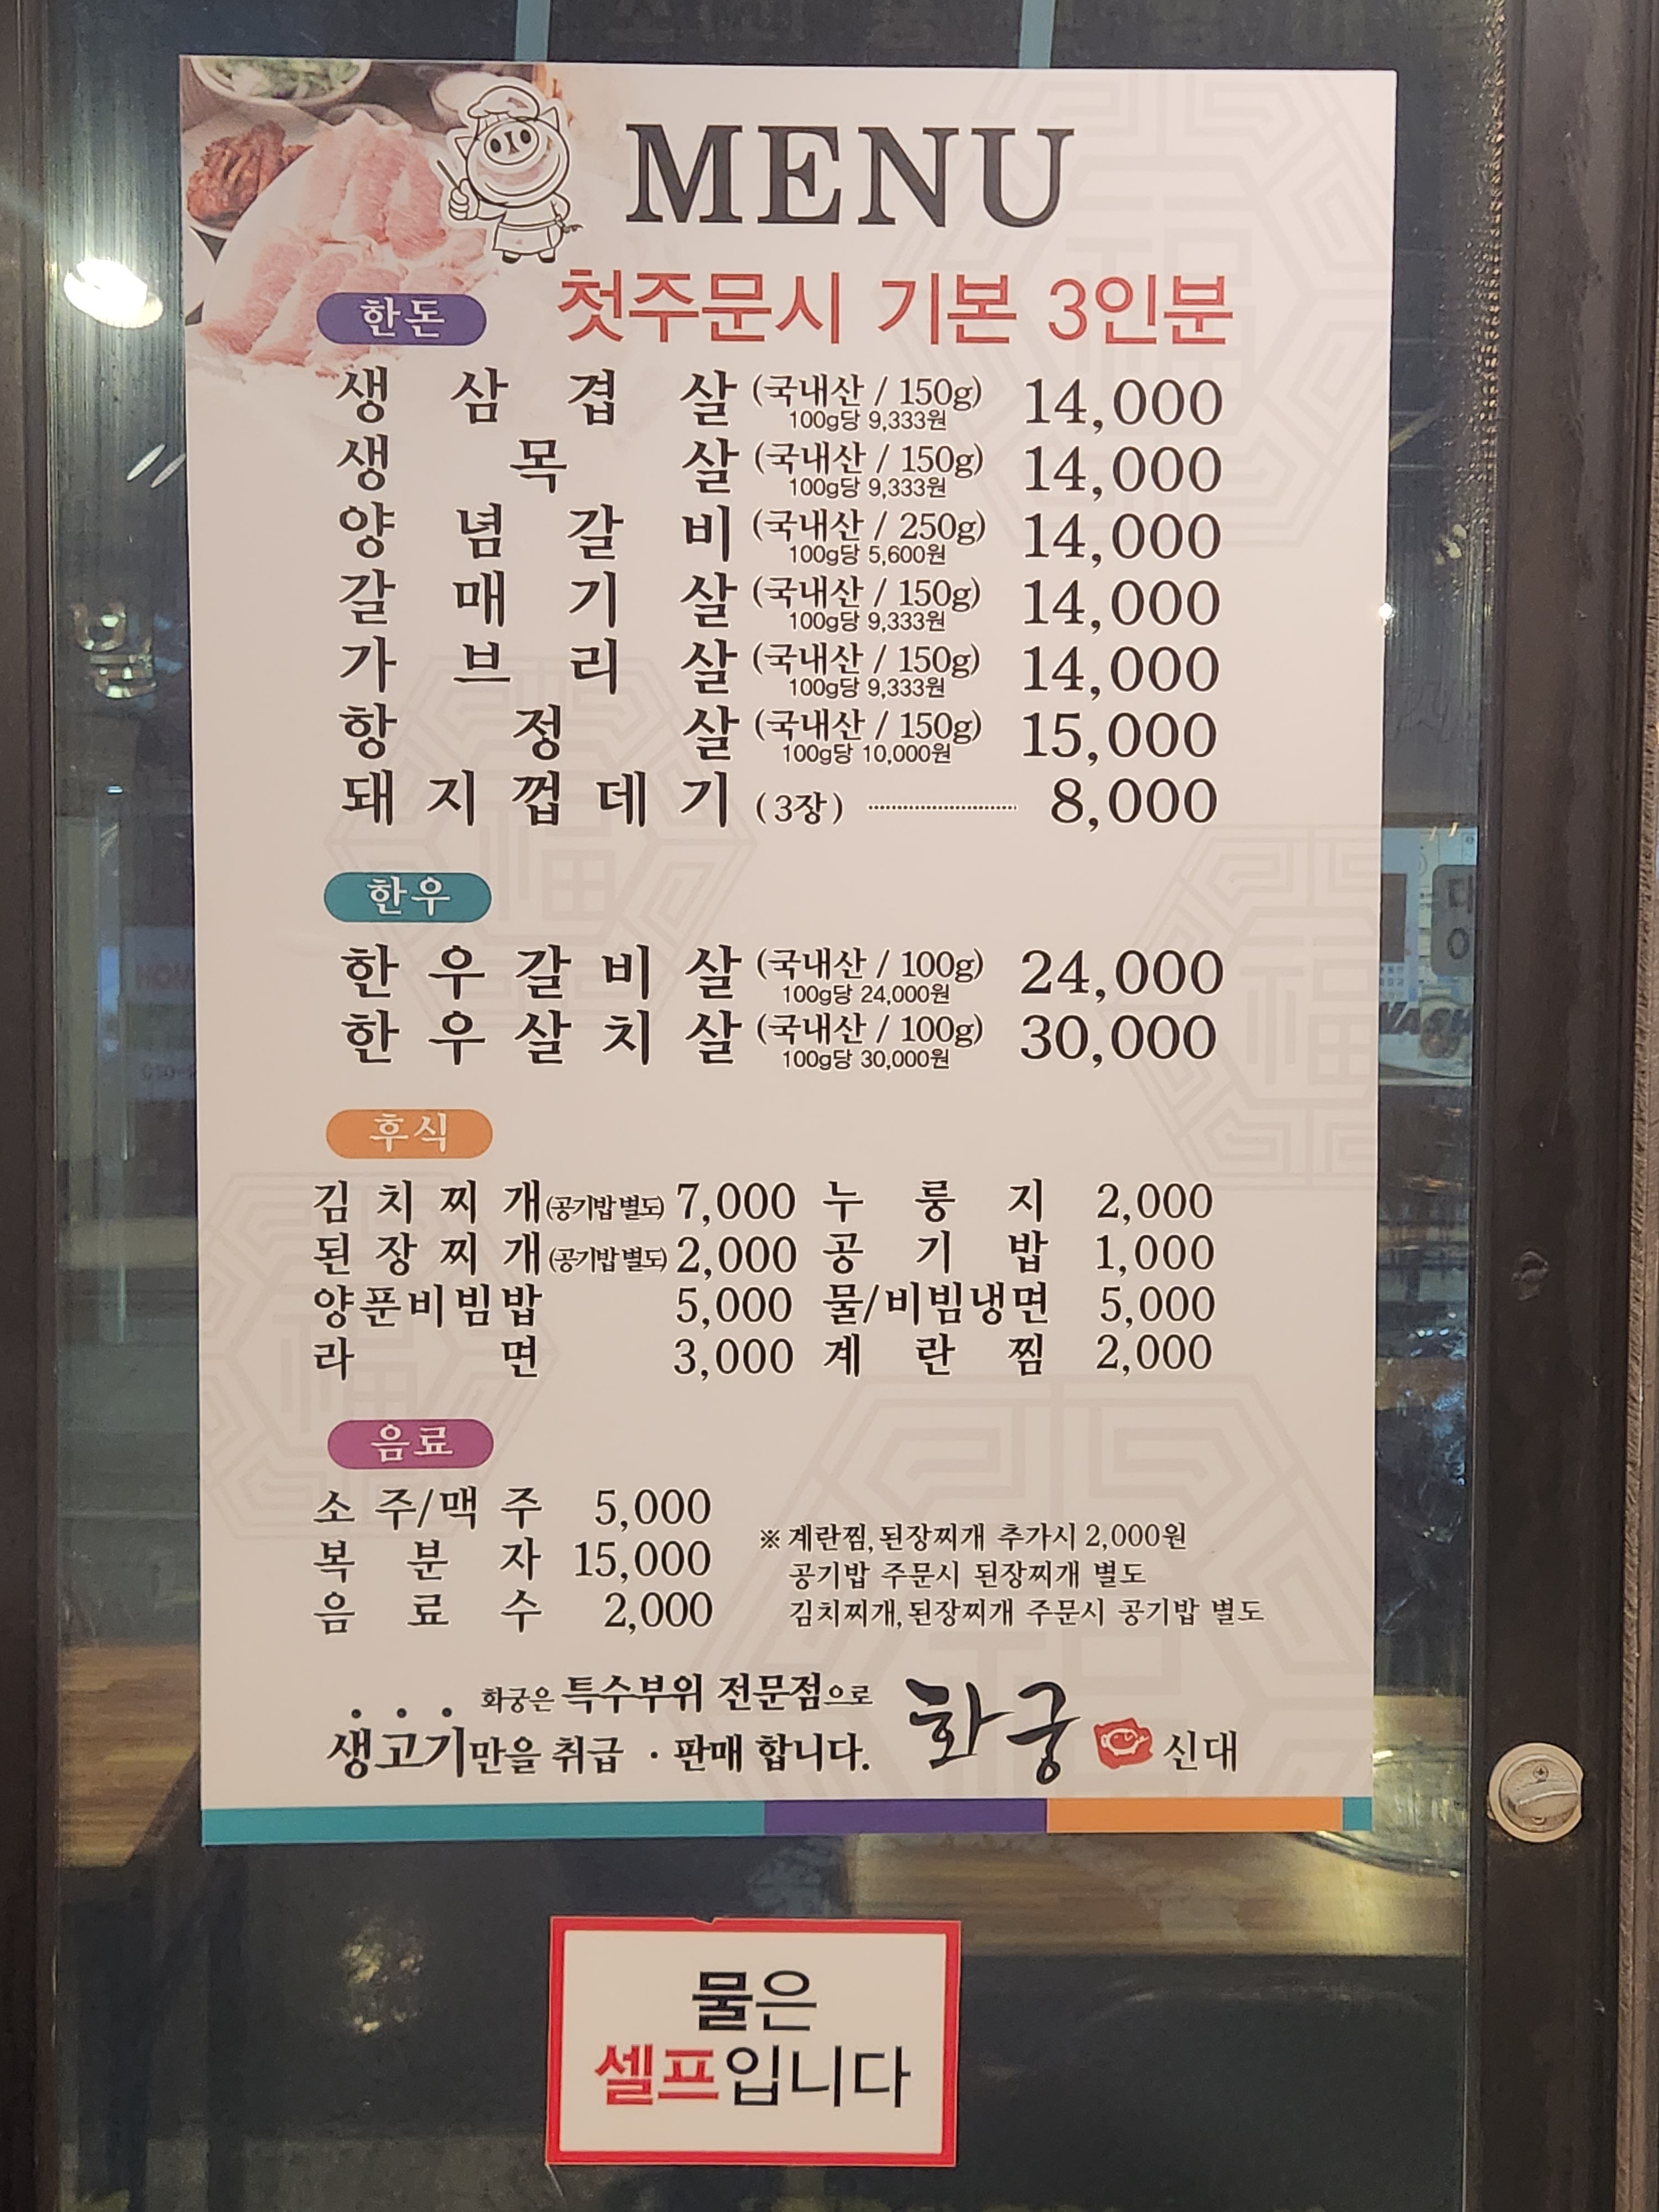 MENU
한돈 첫주문시 기본 3인분
생삼겹살 (국내산 / 150g) 14,000
100g당 9,333원
생목살 (국내산 / 150g) 14,000
100g당 9,333원
양념갈비 (국내산 / 250g) 14,000
100g당 5,600원
갈매기살 (국내산 / 150g) 14,000
100g당 9,333원
가브리살 (국내산 / 150g) 14,000
100g당 9,333원
항정살 (국내산 / 150g) 15,000
100g당 10,000원
돼지껍데기 (3장) 8,000
한우
한우갈비살 (국내산 / 100g) 24,000
100g당 24,000원
한우살치살 (국내산 / 100g) 30,000
100g당 30,000원
후식
김치찌개(공기밥별도) 7,000 누룽지 2,000
된장찌개(공기밥별도) 2,000 공기밥 1,000
양푼비빔밥 5,000 물/비빔냉면 5,000
라면 3,000 계란찜 2,000
음료
소주/맥주 5,000
복분자 15,000
음료수 2,000
※ 계란찜, 된장찌개 추가시 2,000원
공기밥 주문시 된장찌개 별도
김치찌개, 된장찌개 주문시 공기밥 별도
화궁은 특수부위 전문점으로
생고기만을 취급 · 판매 합니다.
화궁 신대
물은
셀프입니다